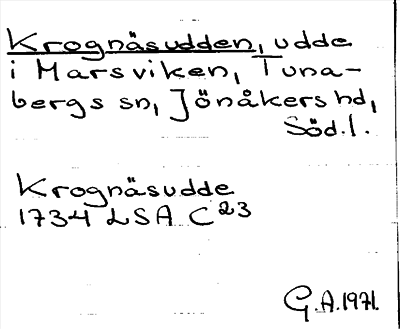 Krognäsudden, udde
i Marsviken, Tuna-
bergs sn, Jönåkers hd,
Söd.l.
Krognäsudde
1734 LSA C23
G.A.1971.